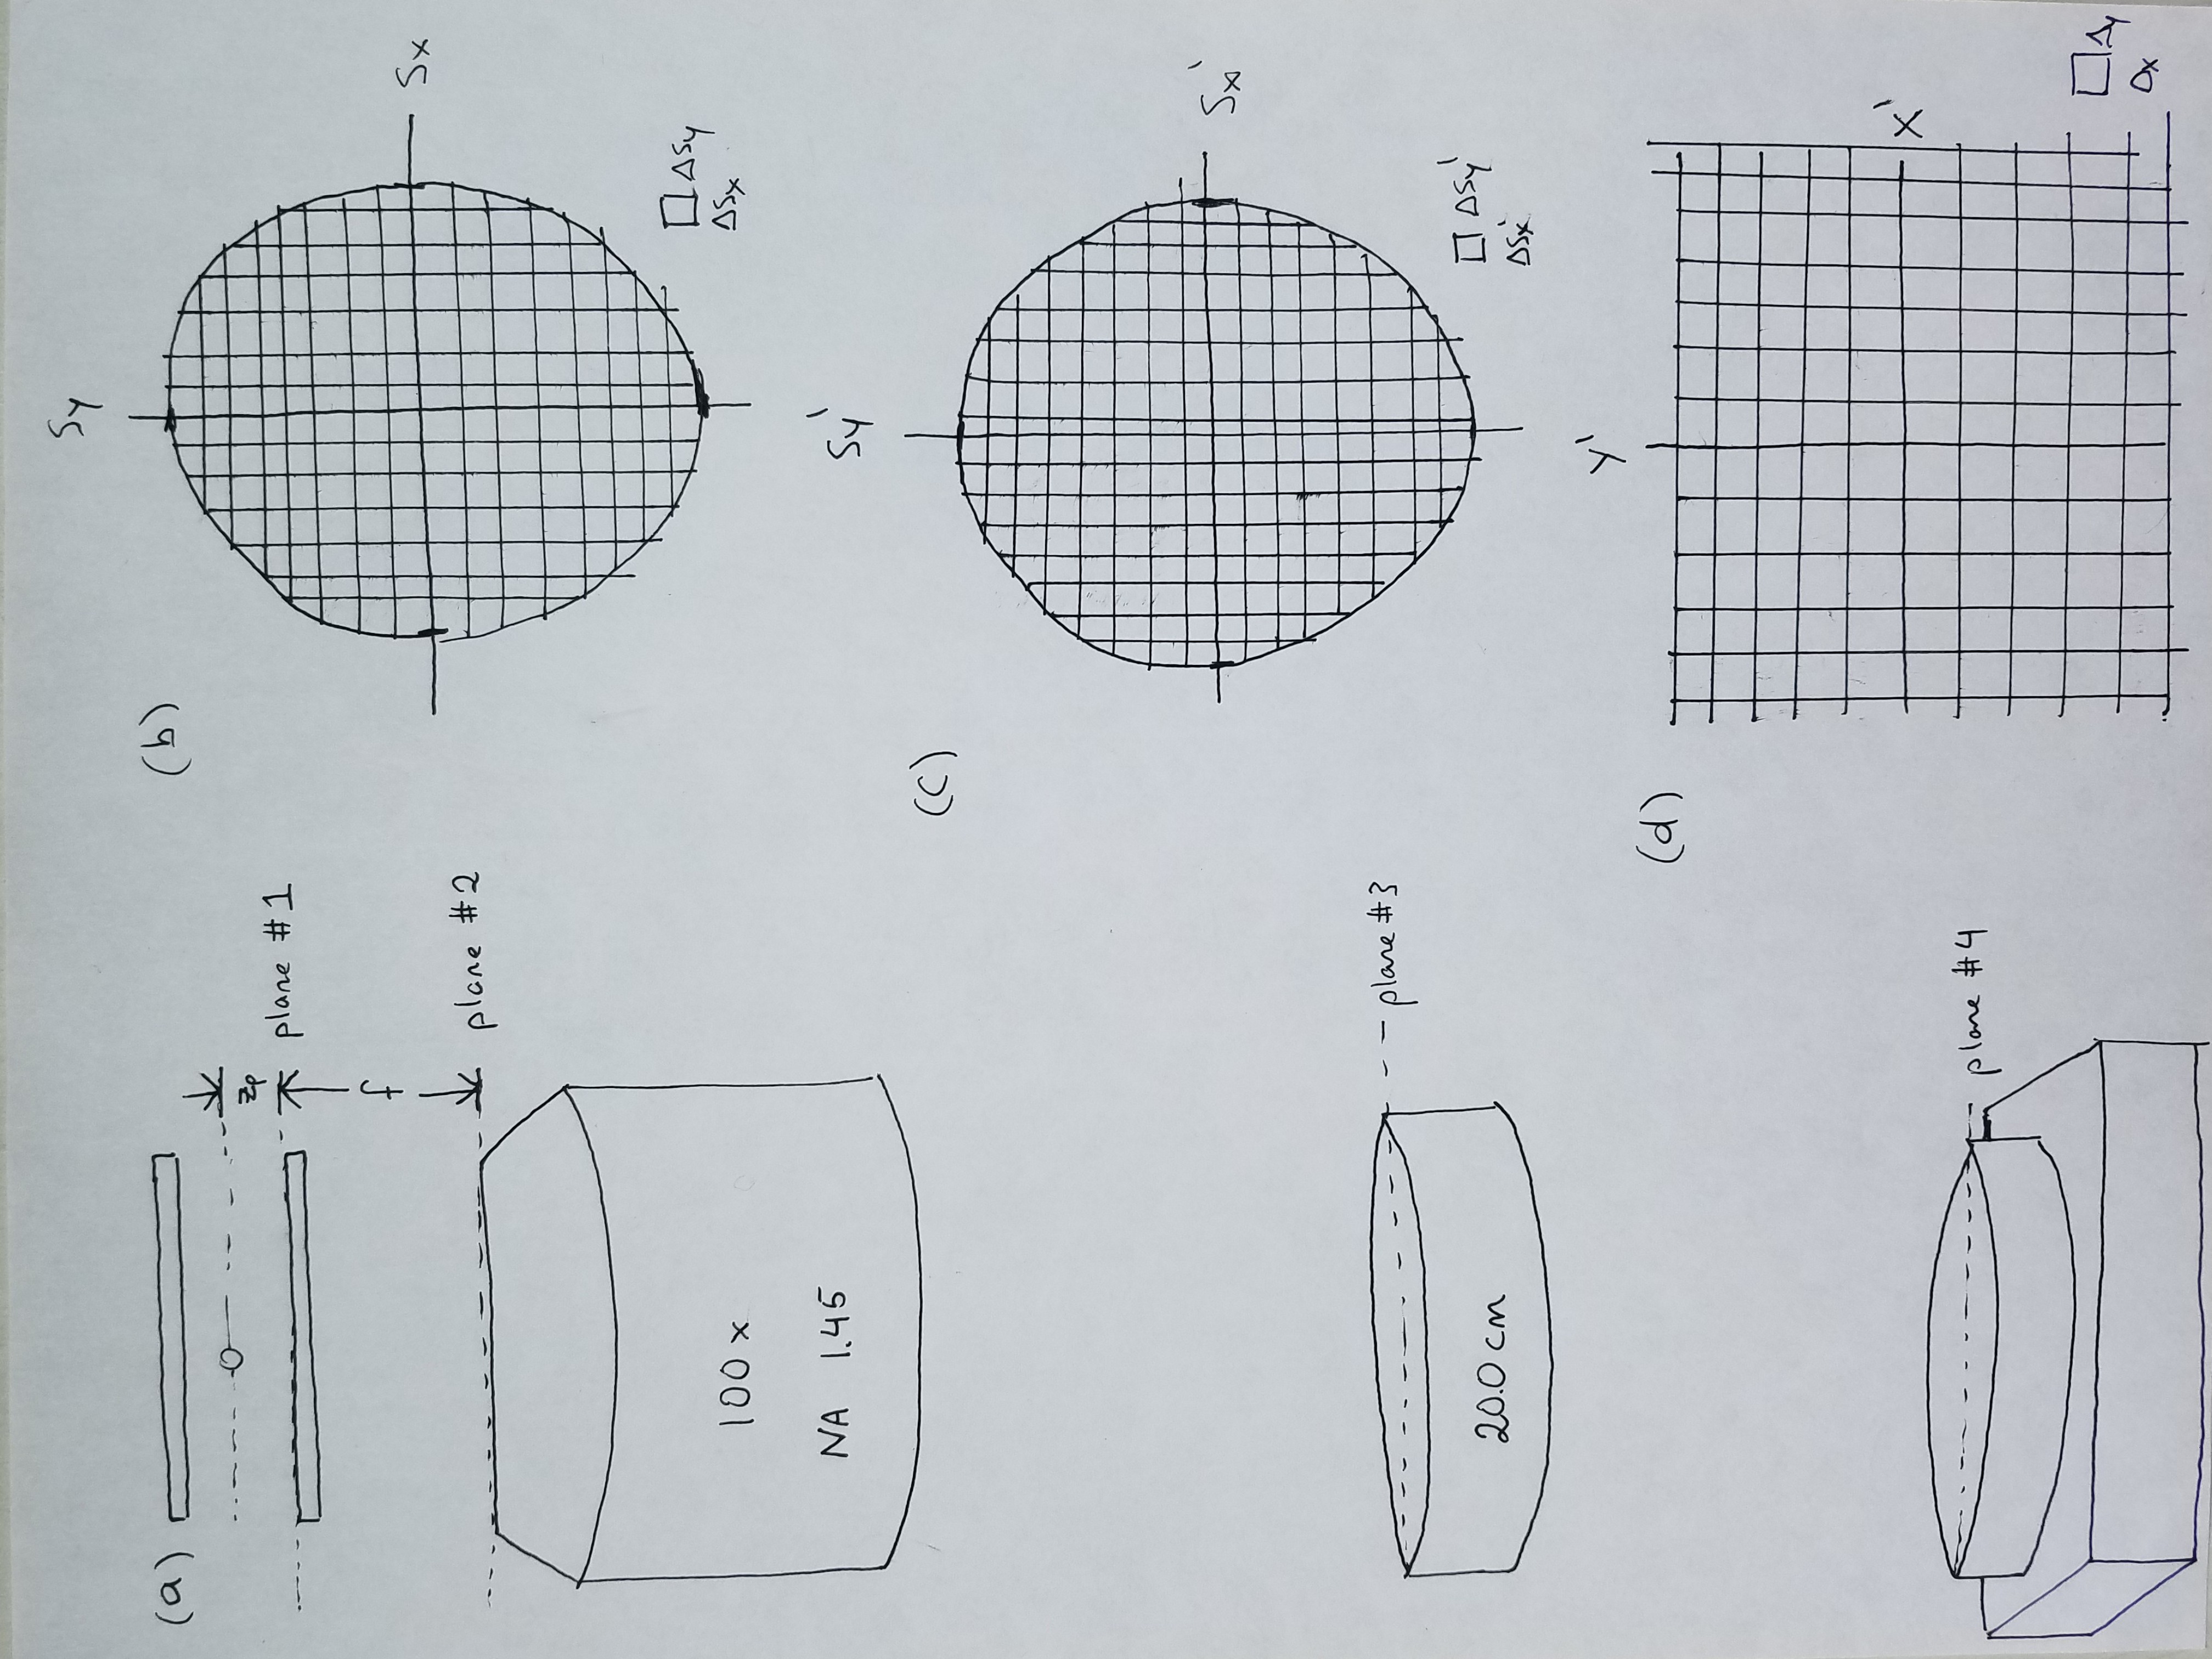 (a)
zp
plane #1
f
plane #2
100x
NA 1.45
plane #3
20.0cm
plane #4
(b)
Sy
Sx
ΔSy
ΔSx
(c)
Sy'
Sx'
ΔSy'
ΔSx'
(d)
y'
x'
Δy
Δx